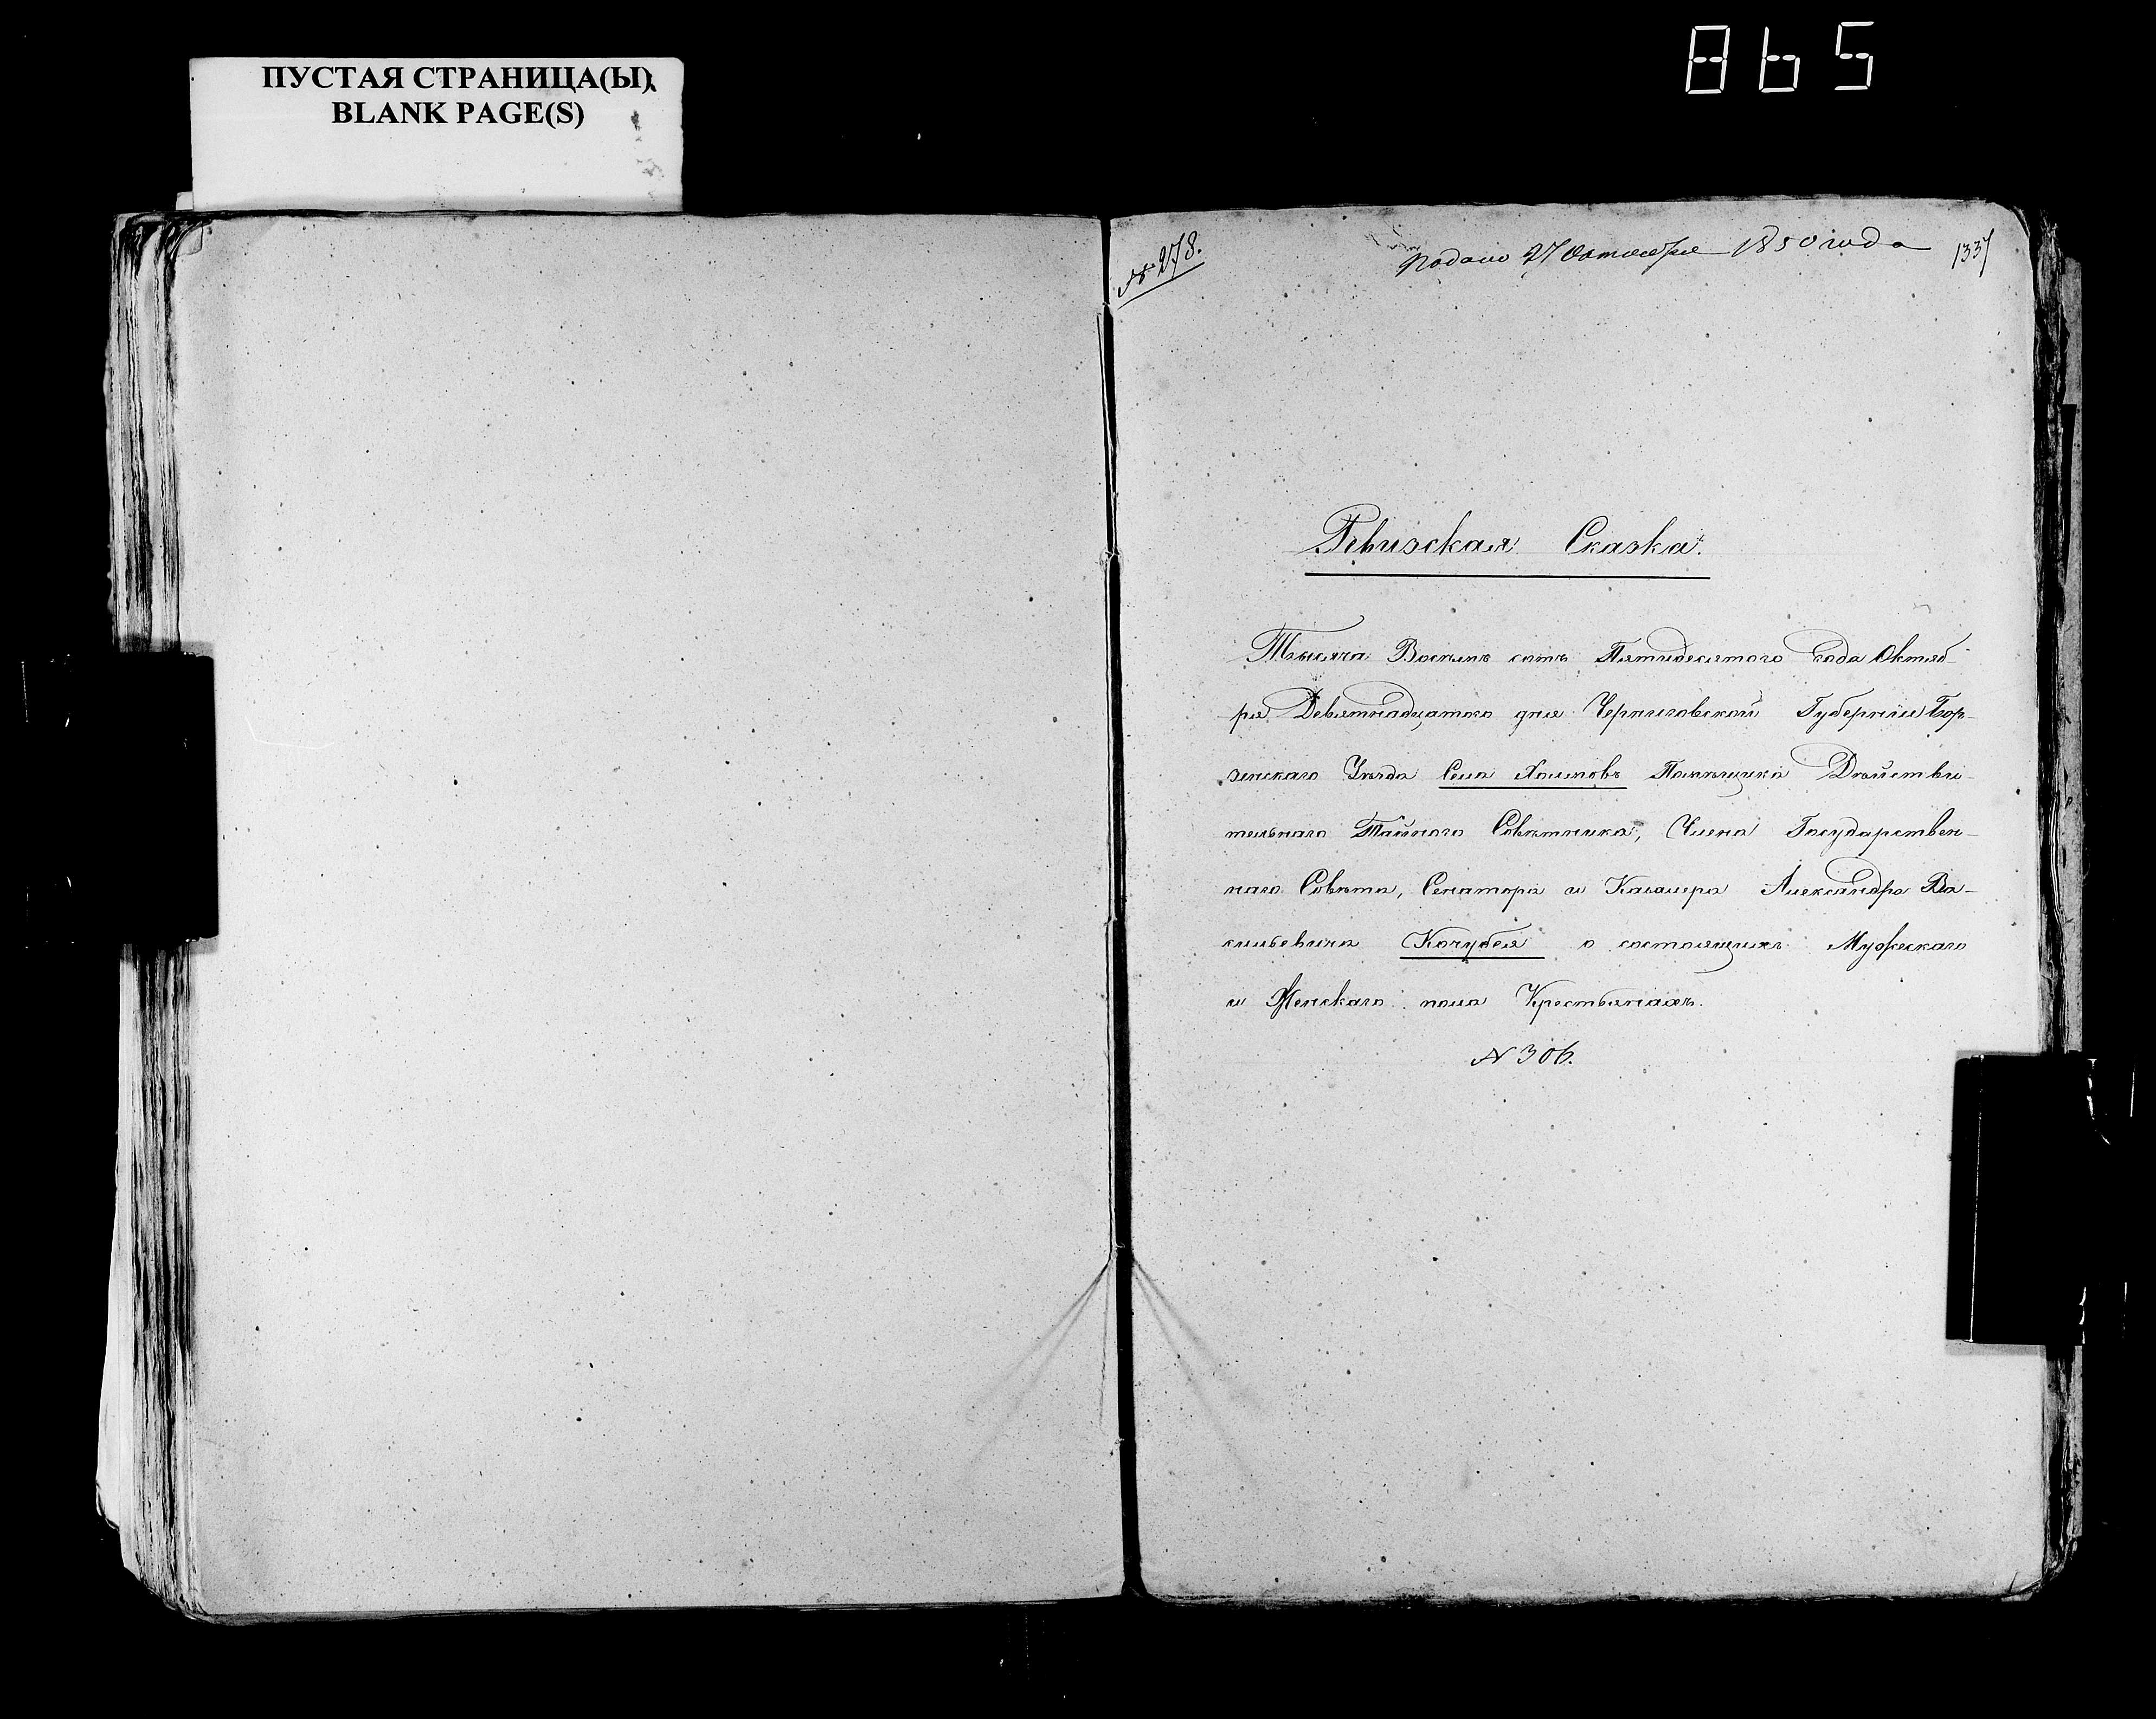 865
ПУСТАЯ СТРАНИЦА(Ы)
BLANK PAGE(S)
№ 278.
Подано 27 Октября 1850 года
1337
Ревизская Сказка.
Тысяча Восемь сотъ Пятидесятого Года Октяб-
ря Девятнадцатого дня Черниговской Губерніи Бор-
зенскаго Уѣзда Села Холмовъ Помѣщика Дѣйстви-
тельнаго Тайнаго Совѣтника, Члена Государствен-
наго Совѣта, Сенатора и Кавалера Александра Ва-
сильевича Кочубея о состоящихъ Мужескаго
и Женскаго пола Крестьянахъ.
N 306.